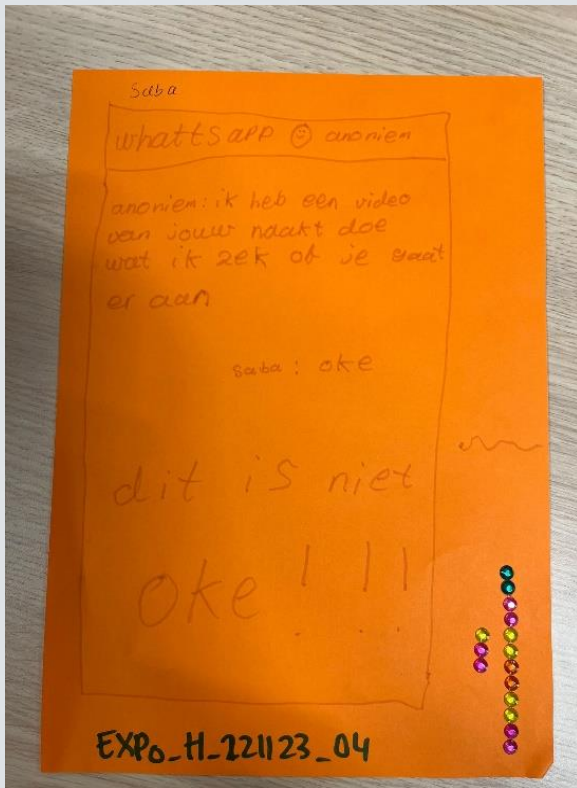 Saba
whattsapp ☺ anoniem
anoniem: ik heb een video
van jouw naakt doe
wat ik zek of je gaat
er aan
saba : oke
dit is niet
oke ! ! !
EXPO_H_221123_04